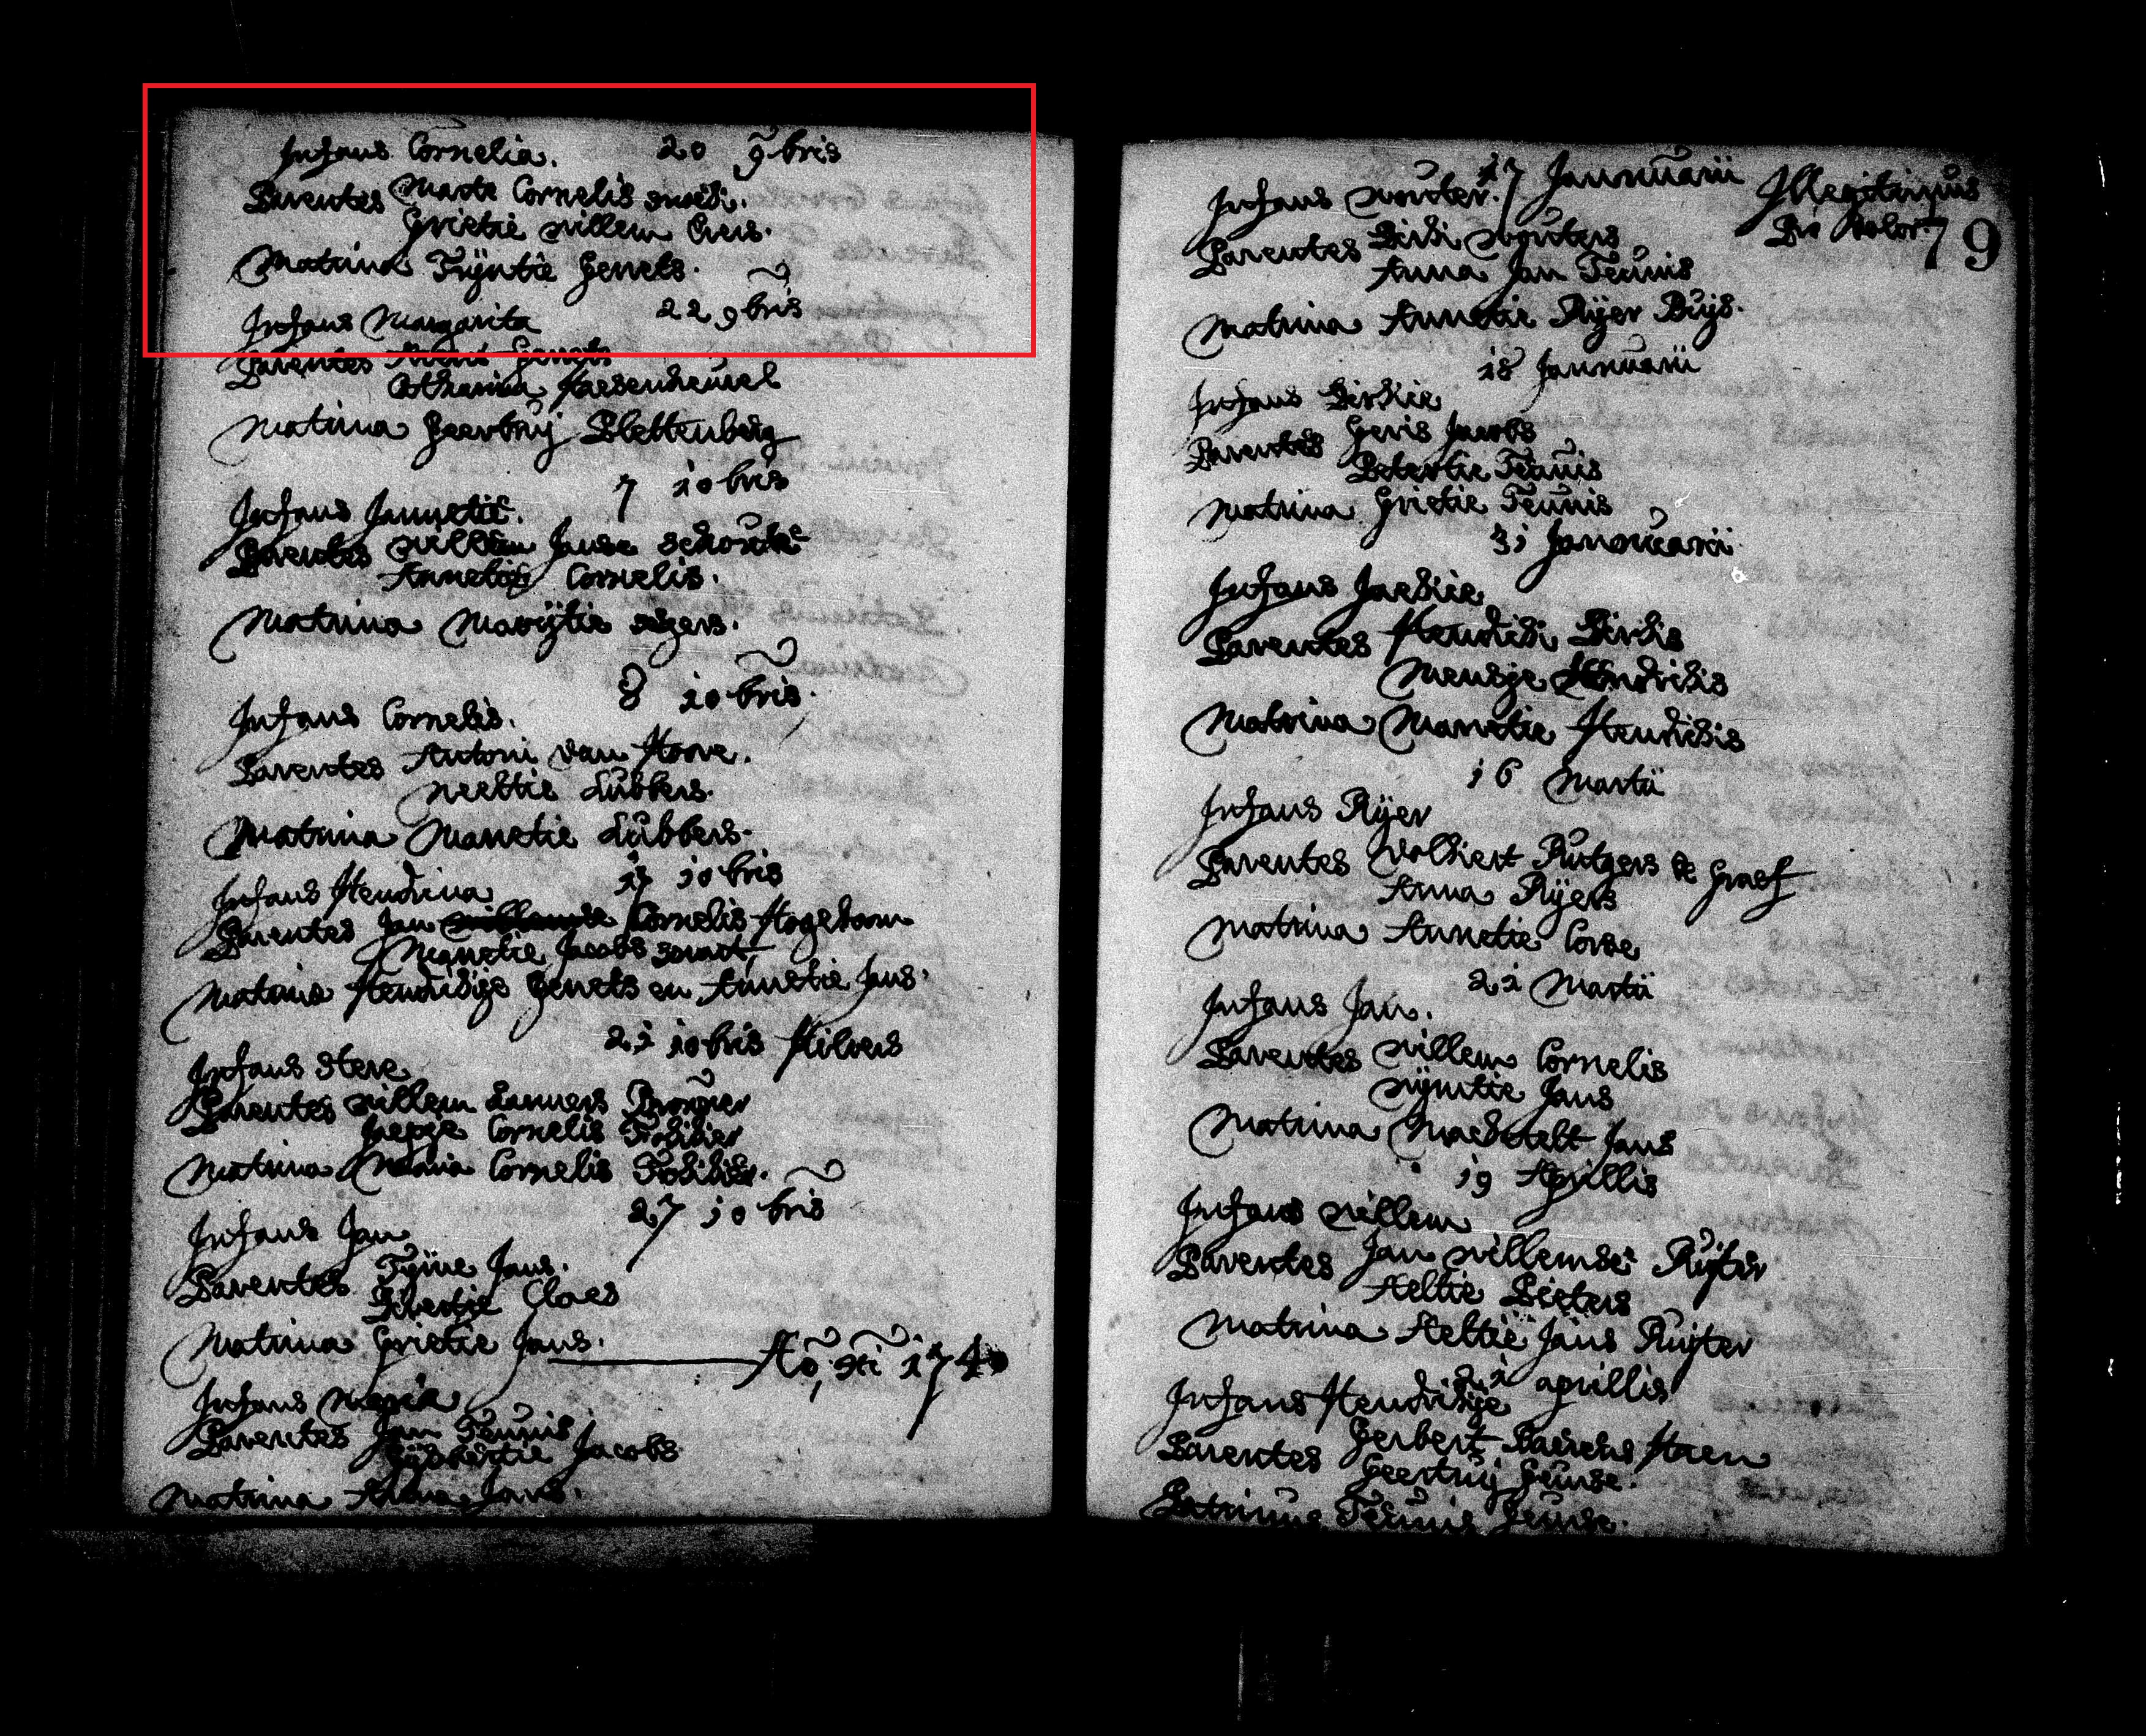 Infans Cornelia. 20 9bris
Parentes Marte Cornelis smidi.
Grietie willem Crers.
Matrina Trÿntie Gerrets.
Infans Margarita 22 9bris
Parentes Gerrets
Catharina Haesenheuvel
Matrina Geertruÿ Plettenberg
7 10bris
Infans Jannetie.
Parentes willem Janse schoute
Annetie Cornelis.
Matrina Marrÿtie segers.
8 10bris.
Infans Cornelis.
Parentes Antoni van Hove.
Neeltie Lubbers.
Matrina Marretie Lubbers.
17 10bris
Infans Hendrina
Parentes Jan Cornelis Hogeboom
Marretie Jacobs swart
Matrina Hendrikje Gerrets en Annetie Jans.
21 10bris Hilvers
Infans
Parentes willem Lamers Brouwer
Cornelis
Matrina Maria Cornelis
27 10bris
Infans Jan
Parentes Tÿme Jans.
Claes
Matrina Grietie Jans.
Ao. 1740
Infans Maria
Parentes Jan Teunis
Gÿsbertie Jacobs
Matrina Anna Jans.
17 Jannuarii Illegitimus
Infans wouter.
79
Parentes Dirk wouters
Anna Jan Teunis
Matrina Annetie Rÿer Buÿs.
18 Jannuarii
Infans Dirkie
Parentes Geris Jacobs
Petertie Teunis
Matrina Grietie Teunis
31 Jannuarii
Infans Jaepie
Parentes Hendrik Dirks
Mensje Hendriks
Matrina Marretie Hendriks
16 Martii
Infans Rÿer
Parentes Volkert Rutgers de Graef
Anna Rÿers
Matrina Annetie Corse
21 Martii
Infans Jan.
Parentes willem Cornelis
wÿntie Jans
Matrina Machtelt Jans
19 Aprillis
Infans willem
Parentes Jan willemse Ruÿter
Aeltie Pieters
Matrina Aeltie Jans Ruÿter
21 aprillis
Infans Hendrikje
Parentes Gerbert Haen
Geertruÿ Teunse.
Patrinus Teunis Teunse.